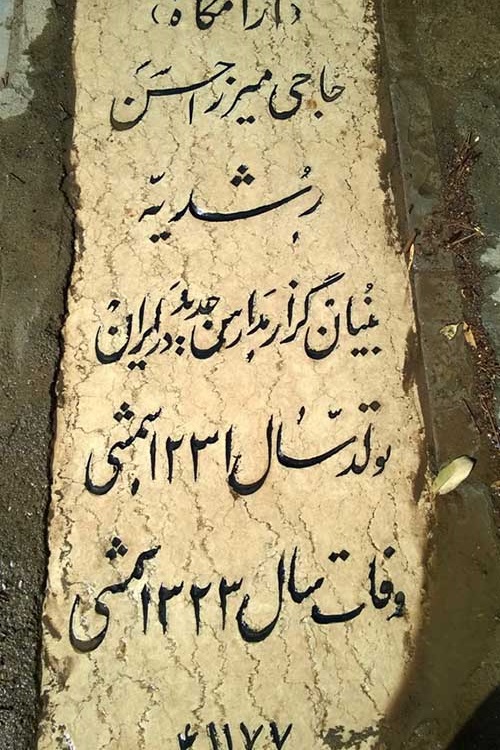 (آرامگاه)
حاجی میرزا حسن
رشدیّه
بُنیان گزار مدارس جدید در ایران
تولّد سال ۱۲۳۱ شمسی
وفات سال ۱۳۲۳ شمسی